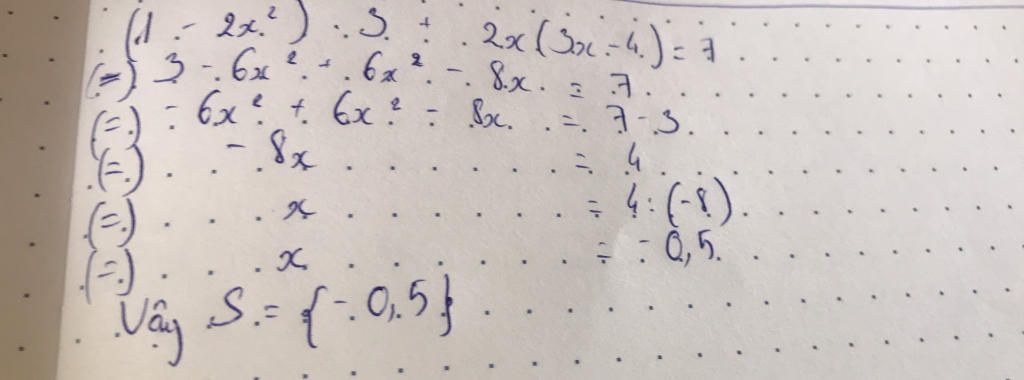 (1 - 2x²) . 3 + 2x(3x - 4) = 7
(=) 3 - 6x² + 6x² - 8x = 7
(=) - 6x² + 6x² - 8x = 7 - 3
(=) - 8x = 4
(=) x = 4 : (-8)
(=) x = - 0,5
Vậy S = {- 0,5}